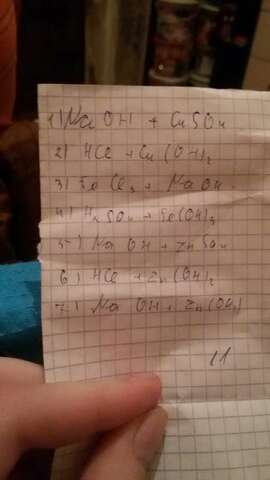 1) NaOH + CuSO4
2) HCl + Cu(OH)2
3) FeCl3 + NaOH
4) H2SO4 + Fe(OH)3
5) NaOH + ZnSO4
6) HCl + Zn(OH)2
7) NaOH + Zn(OH)
11